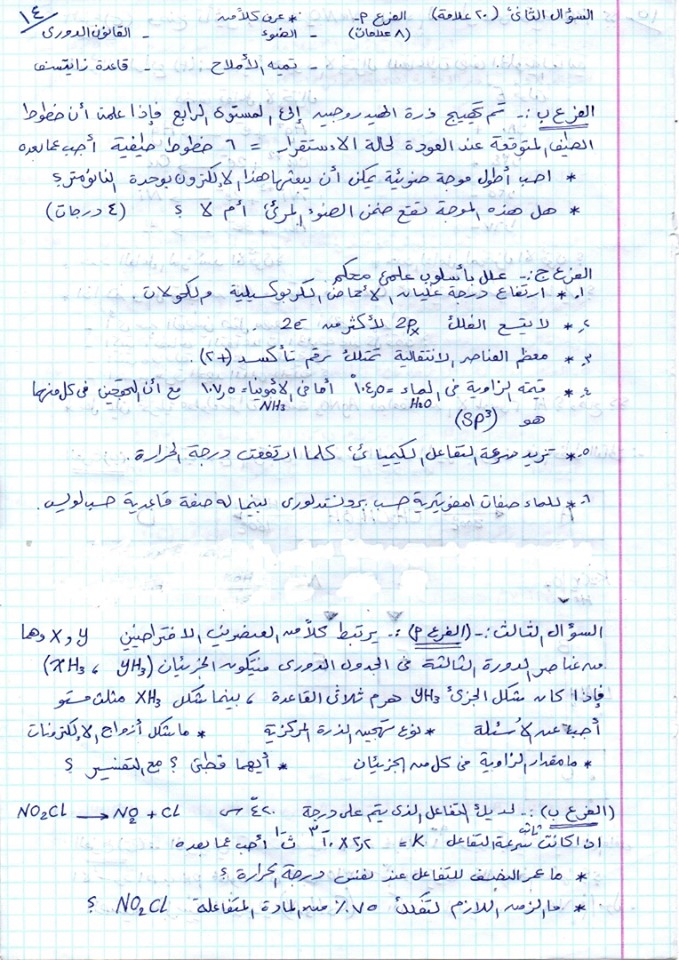 ١٤
السؤال الثاني (٢٠ علامة) الفرع P- * عرف كلاً من
(٨ علامات) - الضوء - القانون الدوري
- تميه الأملاح - قاعدة زايتسف
الفرع ب :- تم تهييج ذرة الهيدروجين إلى المستوى الرابع فإذا علمت أن خطوط
الطيف المتوقعة عند العودة لحالة الاستقرار = ٦ خطوط طيفية أجب عما بعده
* احسب أطول موجة ضوئية يمكن أن يبعثها هذا الإلكترون بوحدة النانومتر؟
* هل هذه الموجة تقع ضمن الضوء المرئي أم لا ؟ (٤ درجات)
الفرع ج :- علل بأسلوب علمي محكم
١. * ارتفاع درجة غليان الأحماض الكربوكسيلية والكحولات.
٢. * لا يتسع الفلك 2Px لأكثر من 2e-
٣. * معظم العناصر الانتقالية تمتلك رقم تأكسد (+٢).
٤. * قيمة الزاوية في الماء = ١٠٤,٥° أما في الأمونيا = ١٠٧,٥ مع أن التهجين في كل منهما
H2O NH3
هو (SP³)
٥. * تزيد سرعة التفاعل الكيميائي كلما ارتفعت درجة الحرارة.
٦. * للماء صفات امفوتيرية حسب برونستد لوري بينما له صفة قاعدية حسب لويس.
السؤال الثالث :- (الفرع P) :- يرتبط كلاً من العنصرين الافتراضيين X و Y وهما
من عناصر الدورة الثالثة في الجدول الدوري فيتكون الجزيئان (XH3 ، YH3)
فإذا كان شكل الجزئ YH3 هرم ثلاثي القاعدة ، بينما شكل XH3 مثلث مستو
أجب عن الأسئلة * نوع تهجين الذرة المركزية * ما شكل أزواج الإلكترونات
* ما مقدار الزاوية في كل من الجزيئان * أيهما قطبي ؟ مع التفسير ؟
(الفرع ب) :- لديك التفاعل الذي يتم على درجة ٤٢٠ س NO2Cl → NO2 + Cl
اذا كانت ثابت سرعة التفاعل K = ٢,٢ X ١٠-٣ ث-١ أجب عما بعده
* ما عمر النصف للتفاعل عند نفس درجة الحرارة ؟
* ما الزمن اللازم لتفكك ٧٥٪ من المادة المتفاعلة NO2Cl ؟